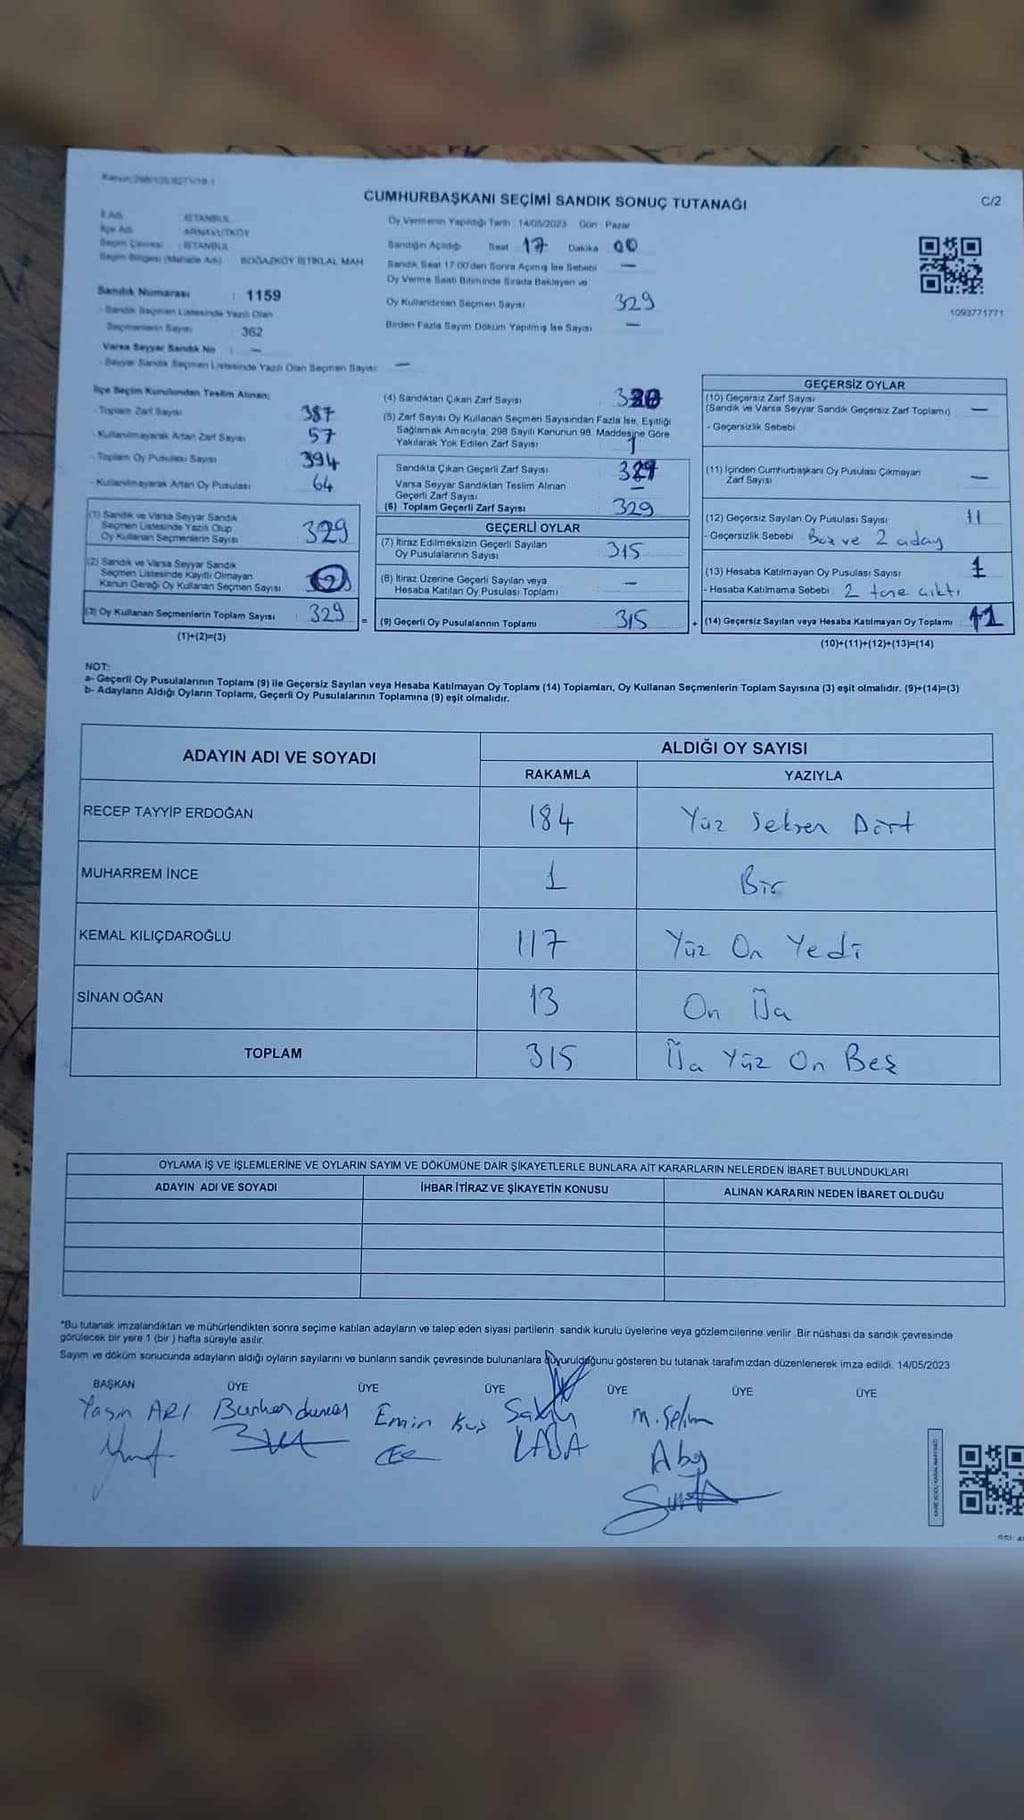 CUMHURBAŞKANI SEÇİMİ SANDIK SONUÇ TUTANAĞI
C/2
İl Adı : İSTANBUL
İlçe Adı : ARNAVUTKÖY
Seçim Çevresi : İSTANBUL
Seçim Bölgesi (Mahalle Adı) : BOĞAZKÖY İSTİKLAL MAH
Sandık Numarası : 1159
- Sandık Seçmen Listesinde Yazılı Olan
Seçmenlerin Sayısı : 362
Varsa Seyyar Sandık No : —
- Seyyar Sandık Seçmen Listesinde Yazılı Olan Seçmen Sayısı : —
Oy Vermenin Yapıldığı Tarih : 14/05/2023 Gün : Pazar
Sandığın Açıldığı Saat 17 Dakika 00
Sandık Saat 17:00'den Sonra Açılmış İse Sebebi —
Oy Verme Saati Bitiminde Sırada Bekleyen ve
Oy Kullandırılan Seçmen Sayısı 329
Birden Fazla Sayım Döküm Yapılmış İse Sayısı —
1093771771
İlçe Seçim Kurulundan Teslim Alınan;
- Toplam Zarf Sayısı 387
- Kullanılmayarak Artan Zarf Sayısı 57
- Toplam Oy Pusulası Sayısı 394
- Kullanılmayarak Artan Oy Pusulası 64
(1) Sandık ve Varsa Seyyar Sandık
Seçmen Listesinde Yazılı Olup
Oy Kullanan Seçmenlerin Sayısı 329
(2) Sandık ve Varsa Seyyar Sandık
Seçmen Listesinde Kayıtlı Olmayan
Kanun Gereği Oy Kullanan Seçmen Sayısı
(3) Oy Kullanan Seçmenlerin Toplam Sayısı 329 =
(1)+(2)=(3)
(4) Sandıktan Çıkan Zarf Sayısı
(5) Zarf Sayısı Oy Kullanan Seçmen Sayısından Fazla İse, Eşitliği
Sağlamak Amacıyla; 298 Sayılı Kanunun 98. Maddesine Göre
Yakılarak Yok Edilen Zarf Sayısı 1
Sandıkta Çıkan Geçerli Zarf Sayısı
Varsa Seyyar Sandıktan Teslim Alınan
Geçerli Zarf Sayısı —
(6) Toplam Geçerli Zarf Sayısı 329
GEÇERLİ OYLAR
(7) İtiraz Edilmeksizin Geçerli Sayılan
Oy Pusulalarının Sayısı 315
(8) İtiraz Üzerine Geçerli Sayılan veya
Hesaba Katılan Oy Pusulası Toplamı —
(9) Geçerli Oy Pusulalarının Toplamı 315 +
GEÇERSİZ OYLAR
(10) Geçersiz Zarf Sayısı
(Sandık ve Varsa Seyyar Sandık Geçersiz Zarf Toplamı) —
- Geçersizlik Sebebi
(11) İçinden Cumhurbaşkanı Oy Pusulası Çıkmayan
Zarf Sayısı —
(12) Geçersiz Sayılan Oy Pusulası Sayısı 11
- Geçersizlik Sebebi Boz ve 2 aday
(13) Hesaba Katılmayan Oy Pusulası Sayısı 1
- Hesaba Katılmama Sebebi 2 tane çıktı
(14) Geçersiz Sayılan veya Hesaba Katılmayan Oy Toplamı
(10)+(11)+(12)+(13)=(14)
NOT:
a- Geçerli Oy Pusulalarının Toplamı (9) ile Geçersiz Sayılan veya Hesaba Katılmayan Oy Toplamı (14) Toplamları, Oy Kullanan Seçmenlerin Toplam Sayısına (3) eşit olmalıdır. (9)+(14)=(3)
b- Adayların Aldığı Oyların Toplamı, Geçerli Oy Pusulalarının Toplamına (9) eşit olmalıdır.
ADAYIN ADI VE SOYADI
ALDIĞI OY SAYISI
RAKAMLA YAZIYLA
RECEP TAYYİP ERDOĞAN 184 Yüz Seksen Dört
MUHARREM İNCE 1 Bir
KEMAL KILIÇDAROĞLU 117 Yüz On Yedi
SİNAN OĞAN 13 On Üç
TOPLAM 315 Üç Yüz On Beş
OYLAMA İŞ VE İŞLEMLERİNE VE OYLARIN SAYIM VE DÖKÜMÜNE DAİR ŞİKAYETLERLE BUNLARA AİT KARARLARIN NELERDEN İBARET BULUNDUKLARI
ADAYIN ADI VE SOYADI İHBAR İTİRAZ VE ŞİKAYETİN KONUSU ALINAN KARARIN NEDEN İBARET OLDUĞU
*Bu tutanak imzalandıktan ve mühürlendikten sonra seçime katılan adayların ve talep eden siyasi partilerin sandık kurulu üyelerine veya gözlemcilerine verilir. Bir nüshası da sandık çevresinde
görülecek bir yere 1 (bir ) hafta süreyle asılır.
Sayım ve döküm sonucunda adayların aldığı oyların sayılarını ve bunların sandık çevresinde bulunanlara duyurulduğunu gösteren bu tutanak tarafımızdan düzenlenerek imza edildi. 14/05/2023
BAŞKAN ÜYE ÜYE ÜYE ÜYE ÜYE ÜYE
Yasin ARI Emin Kuş M. Selim